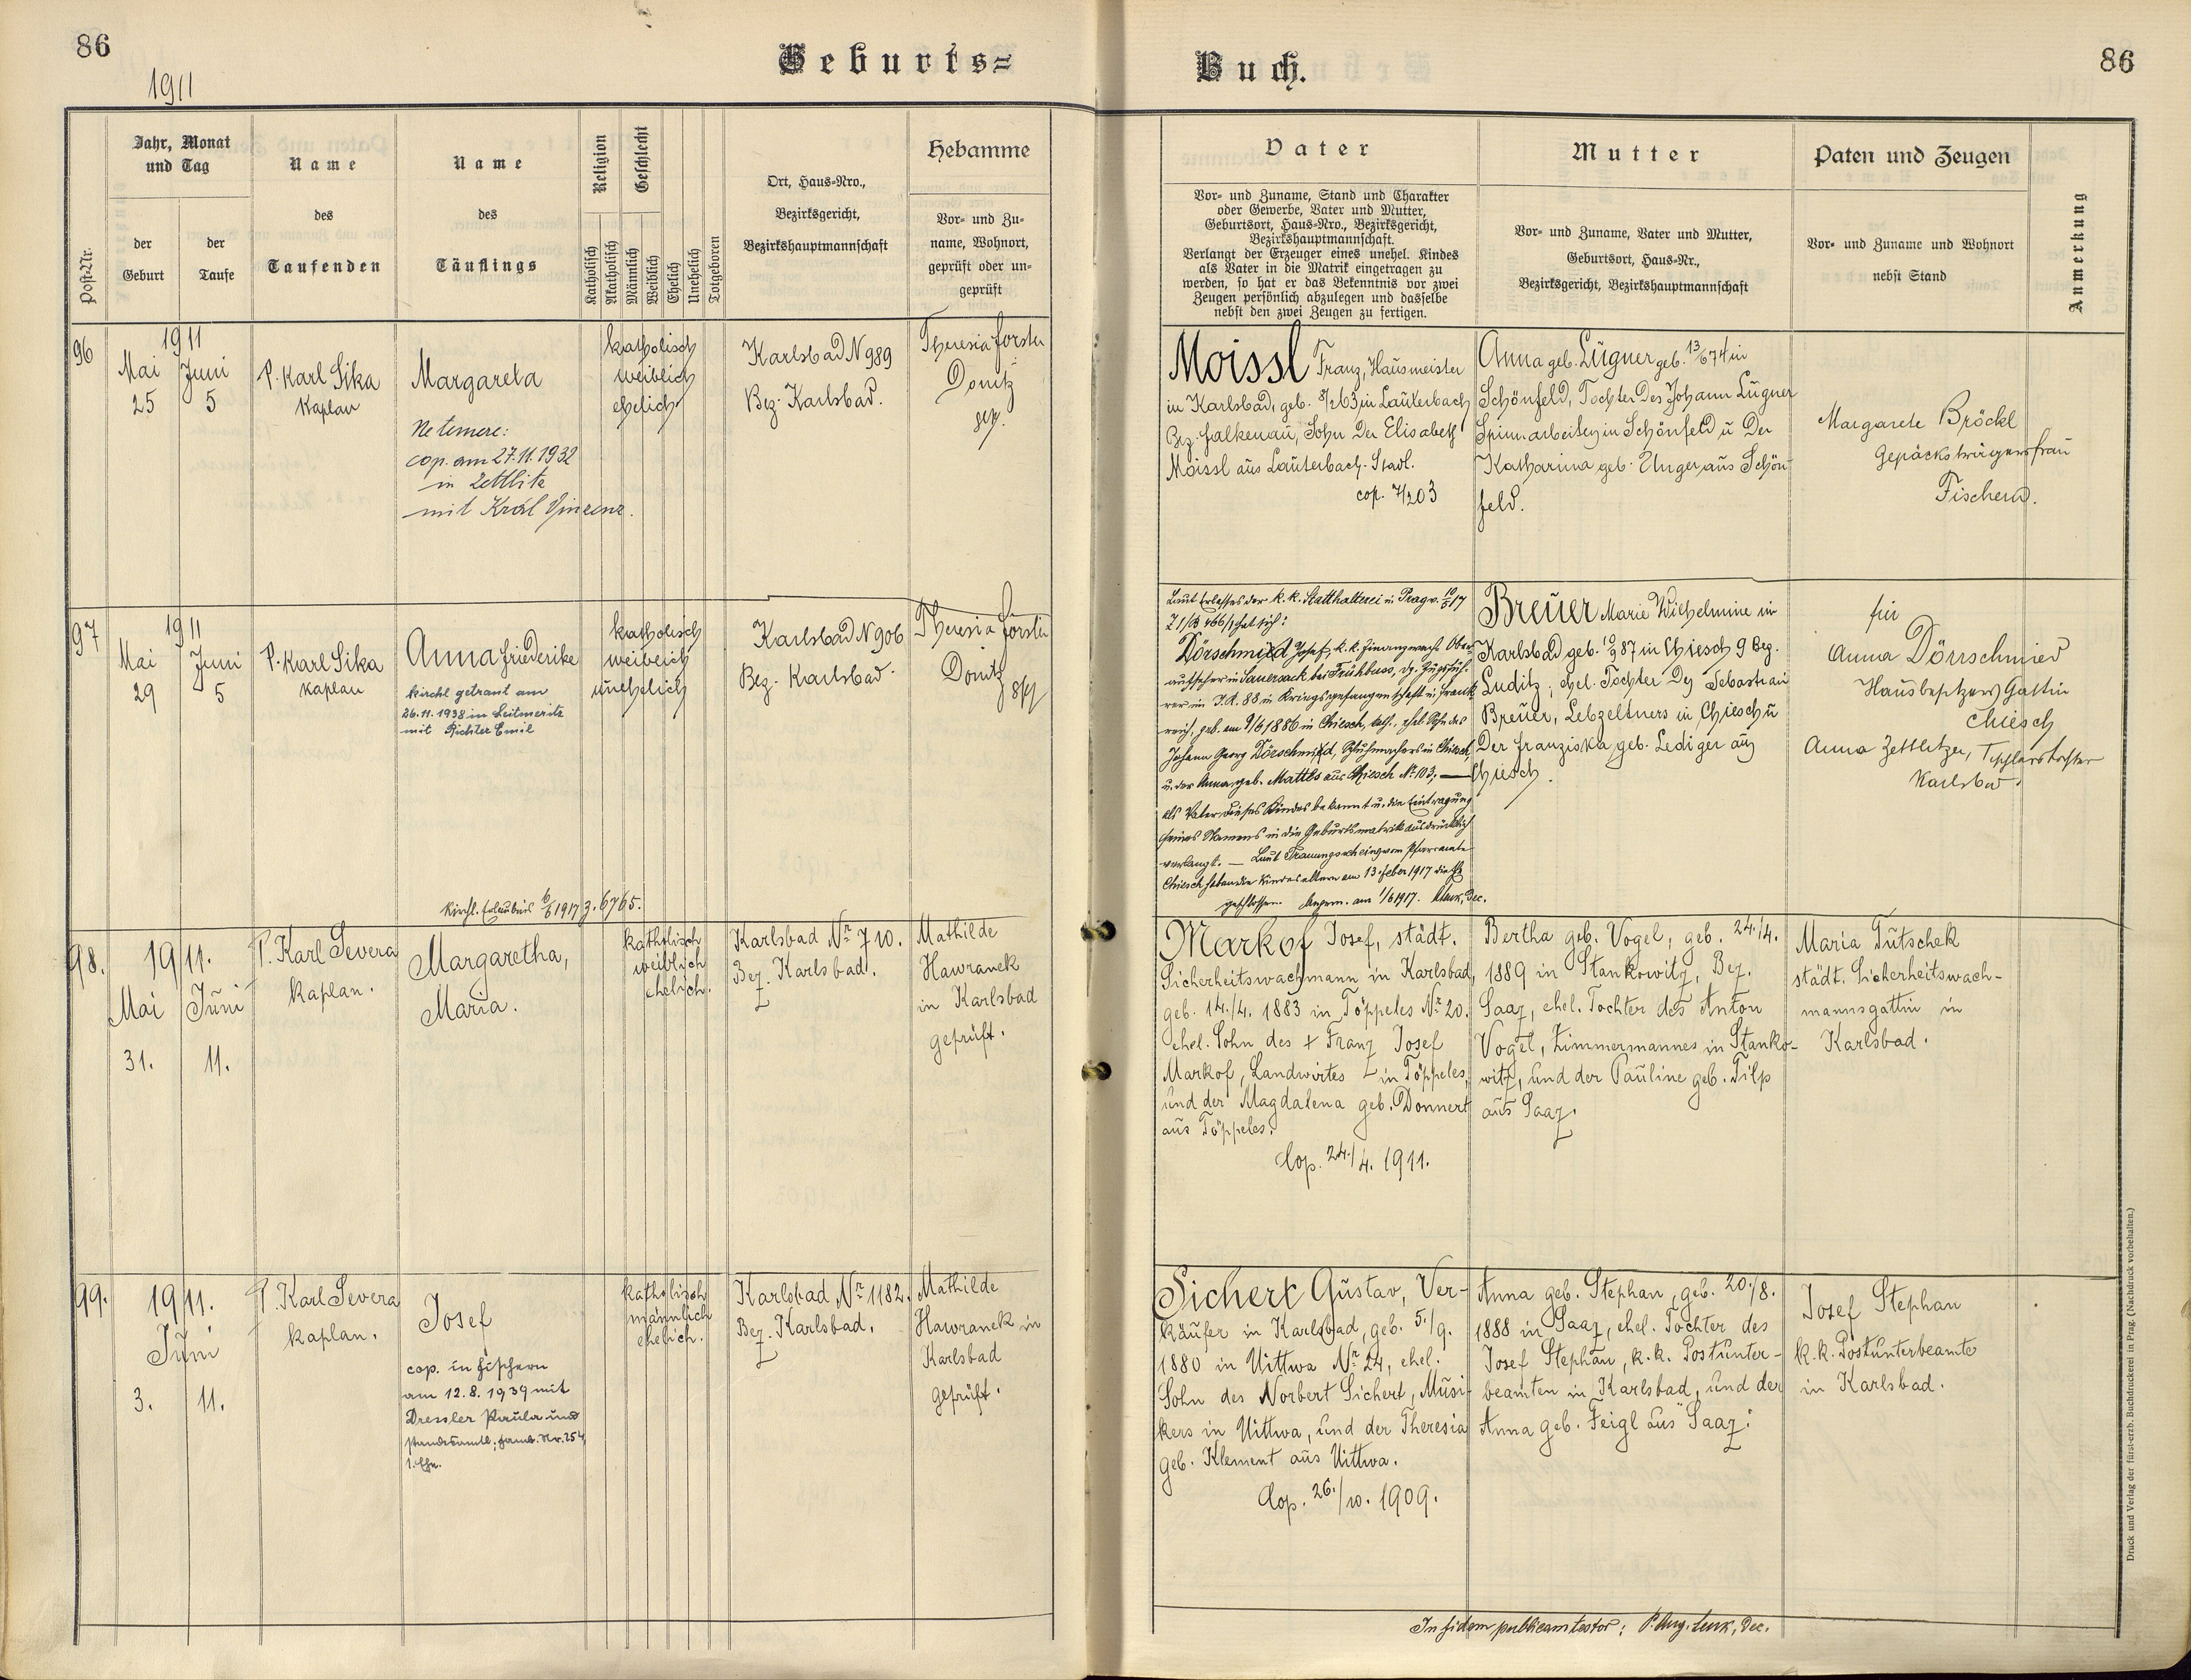 86
1911
Geburts=
Buch.
86
Post-Nr.
Jahr, Monat
und Tag
der
Geburt
der
Taufe
Name
des
Taufenden
Name
des
Täuflings
Religion
Geschlecht
Katholisch
Akatholisch
Männlich
Weiblich
Ehelich
Unehelich
Totgeboren
Ort, Haus-Nro.,
Bezirksgericht,
Bezirkshauptmannschaft
Hebamme
Vor- und Zu-
name, Wohnort,
geprüft oder un-
geprüft
Vater
Vor- und Zuname, Stand und Charakter
oder Gewerbe, Vater und Mutter,
Geburtsort, Haus-Nro., Bezirksgericht,
Bezirkshauptmannschaft.
Verlangt der Erzeuger eines unehel. Kindes
als Vater in die Matrik eingetragen zu
werden, so hat er das Bekenntnis vor zwei
Zeugen persönlich abzulegen und dasselbe
nebst den zwei Zeugen zu fertigen.
Mutter
Vor- und Zuname, Vater und Mutter,
Geburtsort, Haus-Nr.,
Bezirksgericht, Bezirkshauptmannschaft
Paten und Zeugen
Vor- und Zuname und Wohnort
nebst Stand
Anmerkung
96
1911
Mai
25
Juni
5
P. Karl Sika
Kaplan
Margareta
Ne temere:
cop. am 27.11.1932
in Zettlitz
mit Král Vinzenz.
katholisch
weiblich
ehelich
Karlsbad N 989
Bez. Karlsbad.
Theresia Forster
Donitz
gep.
Moissl Franz, Hausmeister
in Karlsbad, geb. 8/2 63 in Lauterbach
Bez. Falkenau, Sohn der Elisabeth
Moissl aus Lauterbach-Stadl.
cop. 7/2 03
Anna geb. Lügner geb. 13/6 74 in
Schönfeld, Tochter des Johann Lügner
Spinnarbeiters in Schönfeld u der
Katharina geb. Unger aus Schön-
feld.
Margarete Bröckl
Gepäcksträgersfrau
Fischern.
97
1911
Mai
29
Juni
5
P. Karl Sika
Kaplan
Anna Friederike
kirchl getraut am
26.11.1938 in Leitmeritz
mit Richter Emil
kirchl. Erlaubnis 6/6 1917 Z. 6765.
katholisch
weiblich
unehelich
Karlsbad N 906
Bez. Karlsbad.
Theresia Forster
Donitz
gep
Laut Erlasses der k. k. Statthalterei in Prag v. 10/5 17
Z 1/B 466/1 hat sich:
Dörschmid Josef, k. k. Finanzwach Ober-
aufseher in Sauersack bei Frühbuss, dz. Zugsfüh-
rer im J.R. 88 in Kriegsgefangenschaft in Frank-
reich, geb. am 9/6 1886 in Chiesch, kath., ehel. Sohn des
Johann Georg Dörschmid, Schuhmachers in Chiesch,
u. der Anna geb. Mattes aus Chiesch Nº 103, —
als Vater dieses Kindes bekannt u. die Eintragung
seines Namens in die Geburtsmatrik ausdrücklich
verlangt. — Laut Trauungsschein vom Pfarramte
Chiesch haben die Kindeseltern am 13. Feber 1917 die Ehe
geschlossen. Angem. am 1/6 1917. Lenk, Dec.
Breuer Marie Wilhelmine in
Karlsbad geb. 10/9 87 in Chiesch 9 Bez.
Luditz, ehel. Tochter des Sebastian
Breuer, Lebzeltners in Chiesch u
der Franziska, geb. Lediger aus
Chiesch.
für
Anna Dörrschmied
Hausbesitzers Gattin
Chiesch
Anna Zettlitzer, Tischlerstochter
Karlsbad.
98.
1911.
Mai
31.
Juni
11.
P. Karl Severa
Kaplan.
Margaretha,
Maria.
katholisch
weiblich
ehelich.
Karlsbad Nr 710.
Bez. Karlsbad.
Mathilde
Hawranek
in Karlsbad
geprüft.
Markof Josef, städt.
Sicherheitswachmann in Karlsbad,
geb. 14./4. 1883 in Töppeles Nr 20.
ehel. Sohn des + Franz Josef
Markof, Landwirtes in Töppeles,
und der Magdalena geb. Donnert
aus Töppeles.
Cop. 24./4. 1911.
Bertha geb. Vogel, geb. 24./4.
1889 in Stankowitz, Bez.
Saaz, ehel. Tochter des Anton
Vogel, Zimmermannes in Stanko-
witz, und der Pauline geb. Tilp
aus Saaz.
Maria Tutschek
städt. Sicherheitswach-
mannsgattin in
Karlsbad.
99.
1911.
Juni
3.
11.
P. Karl Severa
Kaplan.
Josef
cop. in Fischern
am 12.8.1939 mit
Dressler Paula und
standesamtl; Famb. Nr. 254,
1. Ehe.
katholisch
männlich
ehelich.
Karlsbad, Nr 1182.
Bez. Karlsbad.
Mathilde
Hawranek in
Karlsbad
geprüft.
Sichert Gustav, Ver-
käufer in Karlsbad, geb. 5./9.
1880 in Uittwa Nr 24, ehel.
Sohn des Norbert Sichert, Musi-
kers in Uittwa, und der Theresia
geb. Klement aus Uittwa.
Cop. 26./10. 1909.
Anna geb. Stephan, geb. 20./8.
1888 in Saaz, ehel. Tochter des
Josef Stephan, k. k. Postunter-
beamten in Karlsbad, und der
Anna geb. Feigl aus Saaz.
Josef Stephan
k. k. Postunterbeamte
in Karlsbad.
In fidem publicam testor: P. Aug. Lenk, Dec.
Druck und Verlag der fürst-erzb. Buchdruckerei in Prag. (Nachdruck vorbehalten.)